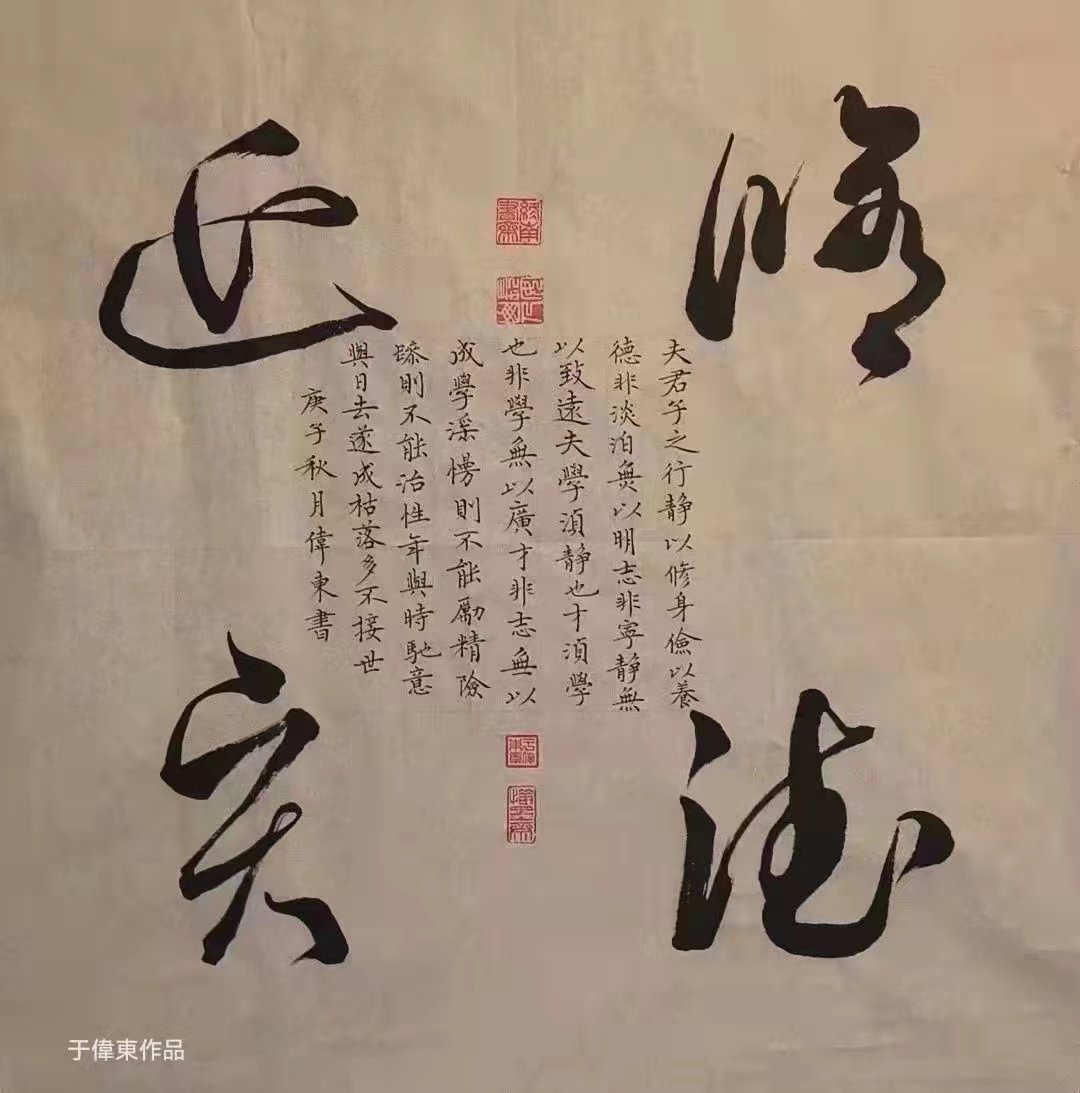 修德
終南書齋
夫君子之行静以修身儉以養
德非淡泊無以明志非寧静無
以致遠夫學須静也才須學
也非學無以廣才非志無以
成學淫慢則不能勵精險
躁則不能治性年與時馳意
與日去遂成枯落多不接世
庚子秋月偉東書
于偉東作品